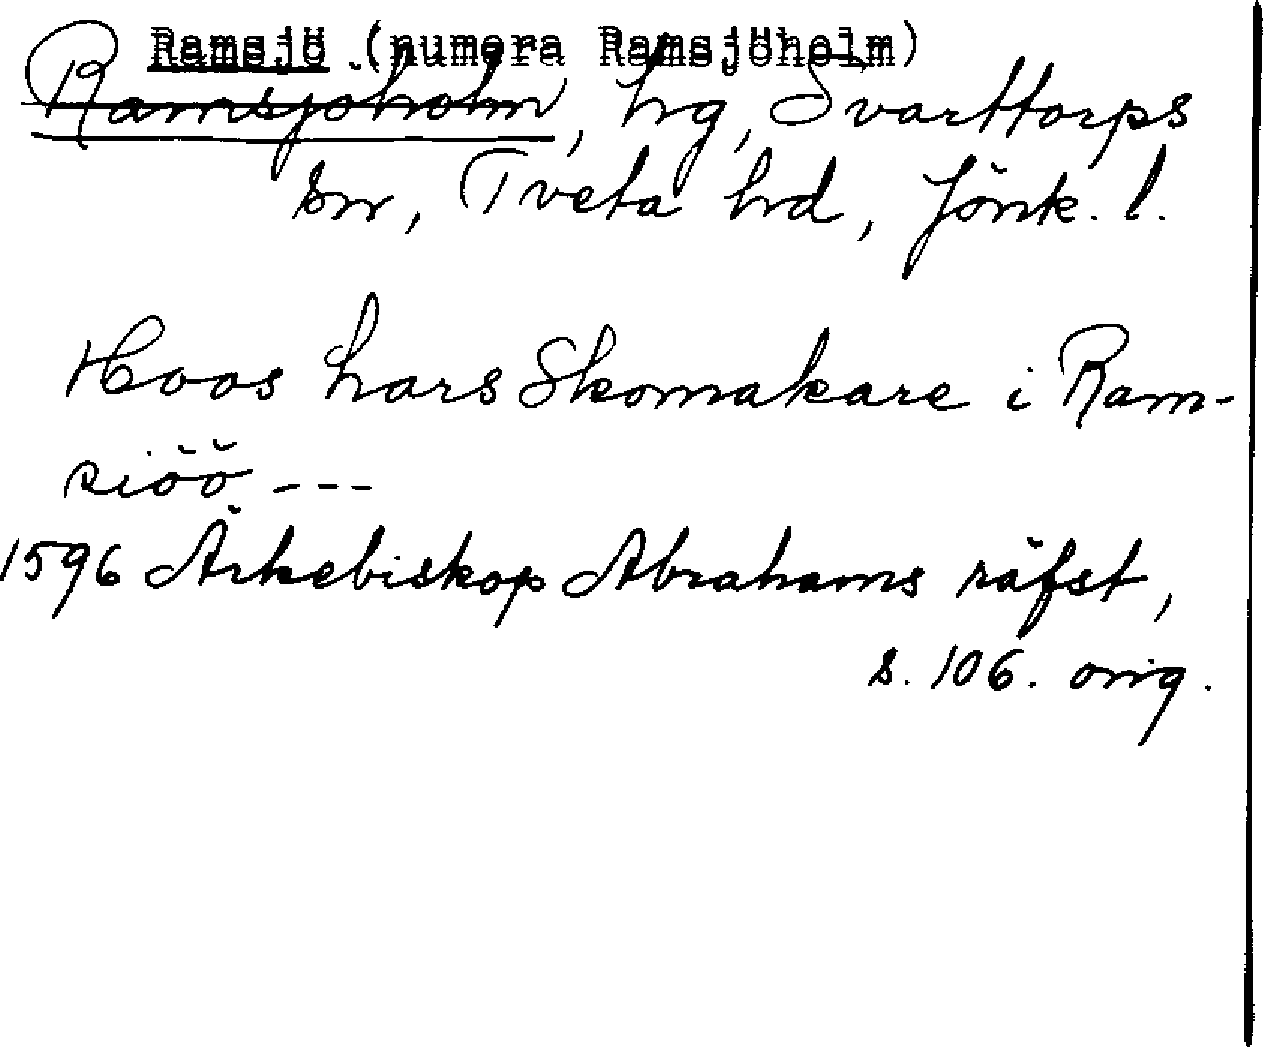 Ramsjö (numera Ramsjöholm)
Ramsjöholm, hrg, Svarttorps
sn, Tveta hrd, Jönk. l.
Hoos Lars Skomakare i Ram-
siöö ---
1596 Ärkebiskop Abrahams räfst,
s. 106. orig.